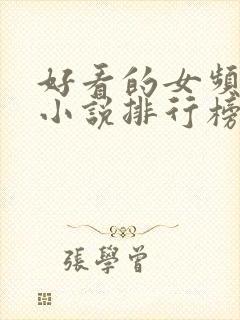 好看的女頻
小說排行榜
張學曾